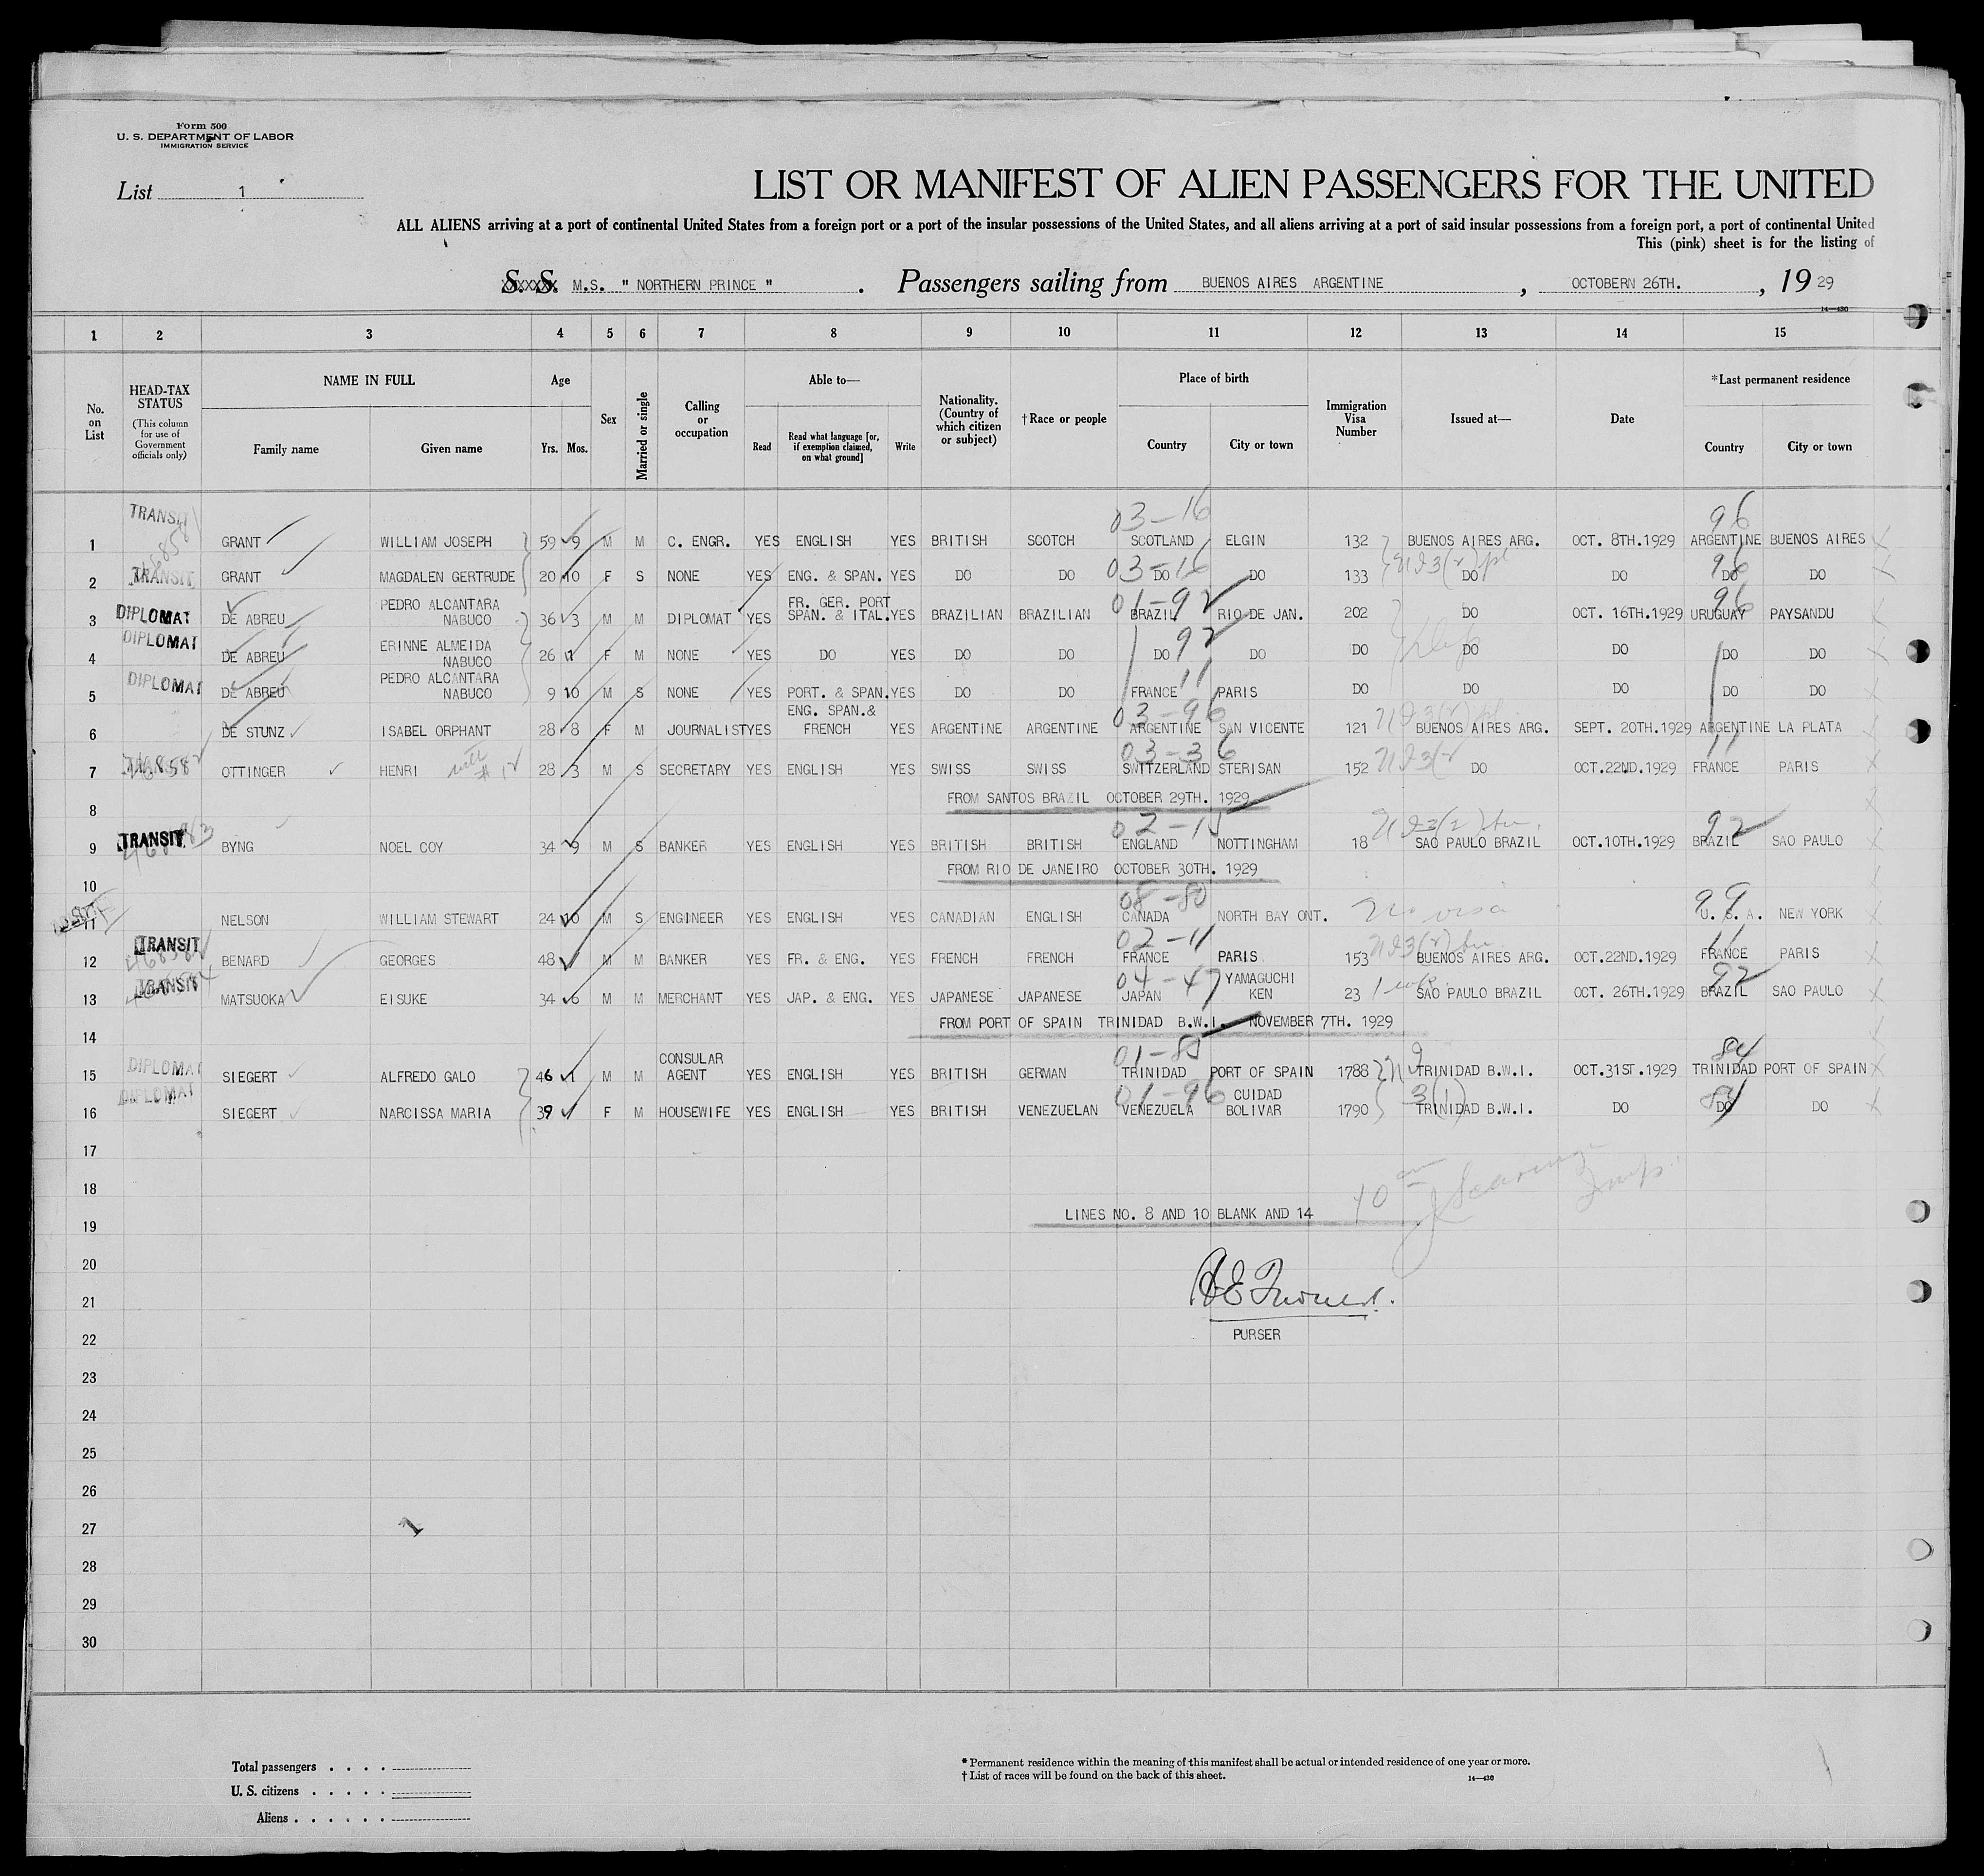 Form 500
U. S. DEPARTMENT OF LABOR
IMMIGRATION SERVICE
List 1
LIST OR MANIFEST OF ALIEN PASSENGERS FOR THE UNITED
ALL ALIENS arriving at a port of continental United States from a foreign port or a port of the insular possessions of the United States, and all aliens arriving at a port of said insular possessions from a foreign port, a port of continental United
This (pink) sheet is for the listing of
S. S. M.S. " NORTHERN PRINCE " . Passengers sailing from BUENOS AIRES ARGENTINE , OCTOBERN 26TH. , 19 29
14—430
1 2 3 4 5 6 7 8 9 10 11 12 13 14 15
No. on List
HEAD-TAX STATUS (This column for use of Government officials only)
NAME IN FULL
Family name Given name
Age
Yrs. Mos.
Sex
Married or single
Calling or occupation
Able to—
Read Read what language [or, if exemption claimed, on what ground] Write
Nationality. (Country of which citizen or subject)
†Race or people
Place of birth
Country City or town
Immigration Visa Number
Issued at—
Date
*Last permanent residence
Country City or town
TRANSIT 03-16 96
1 GRANT WILLIAM JOSEPH 59 9 M M C. ENGR. YES ENGLISH YES BRITISH SCOTCH SCOTLAND ELGIN 132 BUENOS AIRES ARG. OCT. 8TH.1929 ARGENTINE BUENOS AIRES
TRANSIT 03-16 96
2 GRANT MAGDALEN GERTRUDE 20 10 F S NONE YES ENG. & SPAN. YES DO DO DO DO 133 DO DO DO DO
DIPLOMAT 01-92 96
3 DE ABREU PEDRO ALCANTARA NABUCO 36 3 M M DIPLOMAT YES FR. GER. PORT SPAN. & ITAL. YES BRAZILIAN BRAZILIAN BRAZIL RIO DE JAN. 202 DO OCT. 16TH.1929 URUGUAY PAYSANDU
DIPLOMAT 92
4 DE ABREU ERINNE ALMEIDA NABUCO 26 1 F M NONE YES DO YES DO DO DO DO DO DO DO DO DO
DIPLOMAT 11
5 DE ABREU PEDRO ALCANTARA NABUCO 9 10 M S NONE YES PORT. & SPAN. YES DO DO FRANCE PARIS DO DO DO DO DO
03-96
6 DE STUNZ ISABEL ORPHANT 28 8 F M JOURNALIST YES ENG. SPAN.& FRENCH YES ARGENTINE ARGENTINE ARGENTINE SAN VICENTE 121 BUENOS AIRES ARG. SEPT. 20TH.1929 ARGENTINE LA PLATA
03-36 11
7 OTTINGER HENRI 28 3 M S SECRETARY YES ENGLISH YES SWISS SWISS SWITZERLAND STERISAN 152 DO OCT.22ND.1929 FRANCE PARIS
FROM SANTOS BRAZIL OCTOBER 29TH. 1929
8
TRANSIT 02-15 92
9 BYNG NOEL COY 34 9 M S BANKER YES ENGLISH YES BRITISH BRITISH ENGLAND NOTTINGHAM 18 SAO PAULO BRAZIL OCT.10TH.1929 BRAZIL SAO PAULO
FROM RIO DE JANEIRO OCTOBER 30TH. 1929
10
08-80 no visa 99
11 NELSON WILLIAM STEWART 24 10 M S ENGINEER YES ENGLISH YES CANADIAN ENGLISH CANADA NORTH BAY ONT. U. S. A. NEW YORK
TRANSIT 02-11 11
12 BENARD GEORGES 48 M M BANKER YES FR. & ENG. YES FRENCH FRENCH FRANCE PARIS 153 BUENOS AIRES ARG. OCT.22ND.1929 FRANCE PARIS
TRANSIT 04-47 92
13 MATSUOKA EISUKE 34 6 M M MERCHANT YES JAP. & ENG. YES JAPANESE JAPANESE JAPAN YAMAGUCHI KEN 23 SAO PAULO BRAZIL OCT. 26TH.1929 BRAZIL SAO PAULO
FROM PORT OF SPAIN TRINIDAD B.W.I. NOVEMBER 7TH. 1929
14
DIPLOMAT 84
15 SIEGERT ALFREDO GALO 46 1 M M CONSULAR AGENT YES ENGLISH YES BRITISH GERMAN TRINIDAD PORT OF SPAIN 1788 TRINIDAD B.W.I. OCT.31ST.1929 TRINIDAD PORT OF SPAIN
DIPLOMAT 01-96 3(1)
16 SIEGERT NARCISSA MARIA 39 F M HOUSEWIFE YES ENGLISH YES BRITISH VENEZUELAN VENEZUELA CUIDAD BOLIVAR 1790 TRINIDAD B.W.I. DO DO DO
17
18
LINES NO. 8 AND 10 BLANK AND 14
19
20
21
PURSER
22
23
24
25
26
27
28
29
30
Total passengers . . . .
U. S. citizens . . . . .
Aliens . . . . . .
* Permanent residence within the meaning of this manifest shall be actual or intended residence of one year or more.
† List of races will be found on the back of this sheet.
14—430